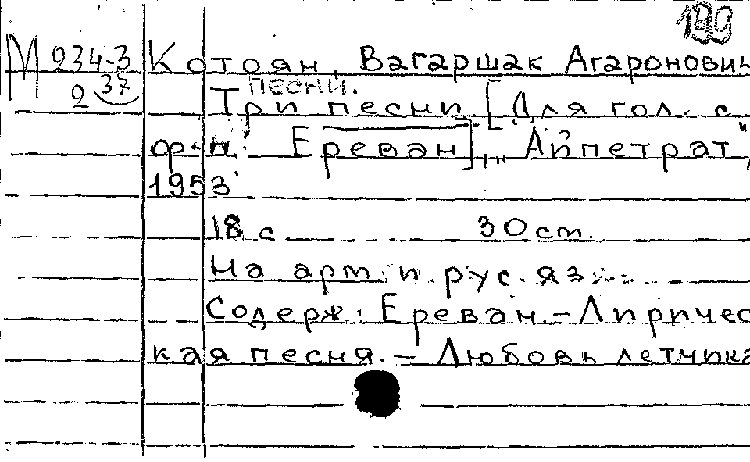 199
М 234-3 Котоян, Вагаршак Агаронович
2 37 песни.
Три песни. [Для гол. с
ф-п. Ереван], "Айпетрат",
1953
18 с 30 см.
На арм. и рус. яз.
Содерж: Ереван. - Лиричес
кая песня. - Любовь летчика